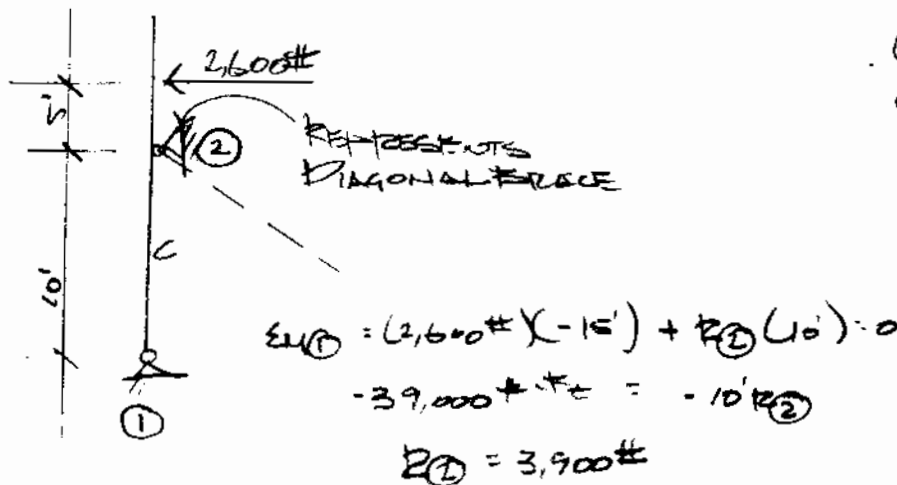 2,600#
5'
②
REPRESENTS
DIAGONAL BRACE
C
10'
①
ΣM① = (2,600#)(-15') + R②(10') = 0
-39,000#·Ft = -10'R②
R② = 3,900#